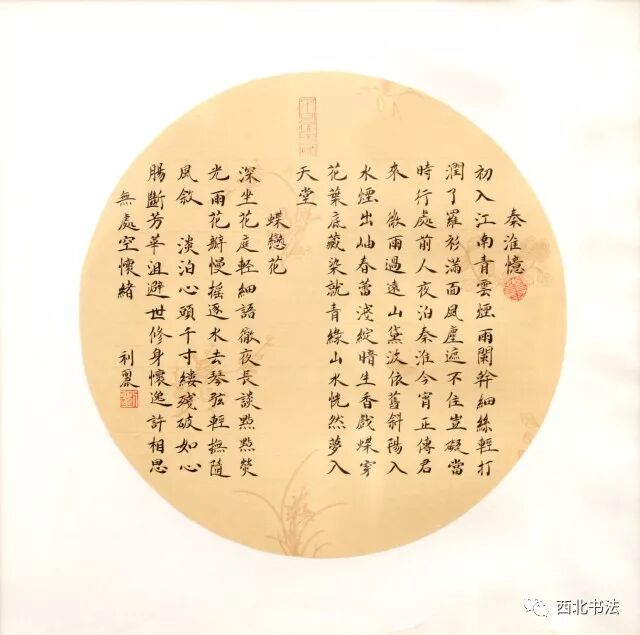 秦淮憶
初入江南青雲煙雨闌幹細絲輕打
潤了羅衫滿面風塵遮不住豈礙當
時行處前人夜泊秦淮今宵正傳君
來 微雨過遠山黛波依舊斜陽入
水煙出岫春蕾淺綻暗生香戲蝶穿
花葉底藏染就青綠山水恍然夢入
天堂
蝶戀花
深坐花庭輕細語徹夜長談點點熒
光雨花瓣慢搖逐水去琴弦輕撫隨
風敘 淡泊心頭千寸縷殘破如心
腸斷芳華沮避世修身懷逸許相思
無處空懷緒
利麗
西北书法